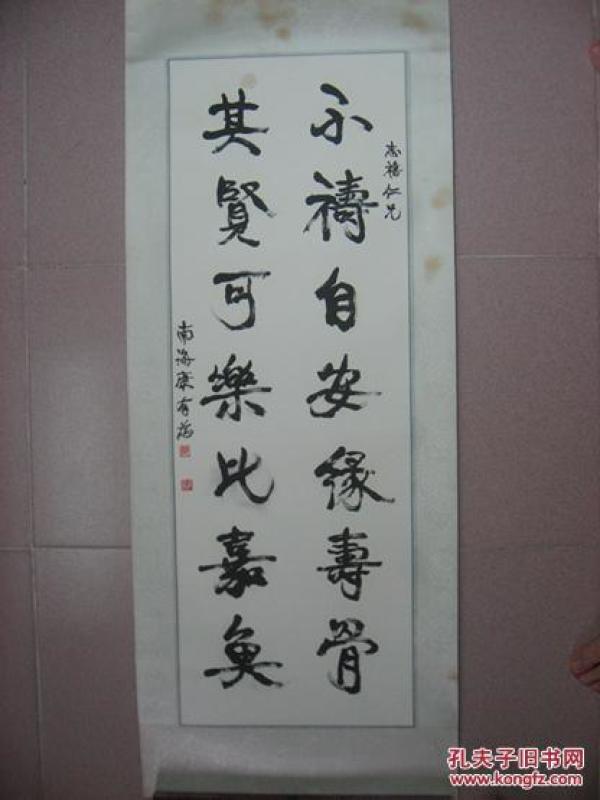 志禧仁兄
不禱自安緣壽骨
其賢可樂比嘉魚
南海康有為
孔夫子旧书网
www.kongfz.com